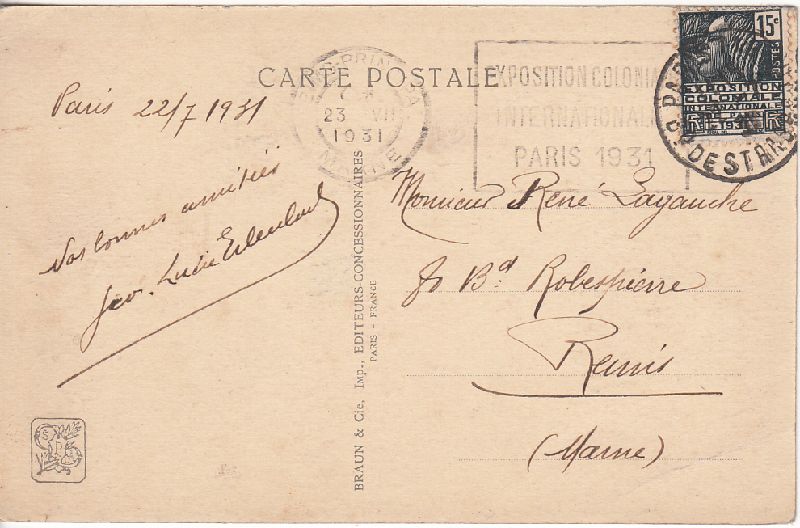 CARTE POSTALE
Paris 22/7 1931
Vos bonnes amitiés
Lucie
BRAUN & Cie, Imp., EDITEURS CONCESSIONNAIRES
PARIS - FRANCE
23 VII
1931
EXPOSITION COLONIALE
INTERNATIONALE
PARIS 1931
15c
POSTES
EXPOSITION
COLONIALE
INTERNATIONALE
PARIS 1931
R. DESTANDRE
Monsieur René Lagauche
80 Bd Robespierre
Reims
(Marne)